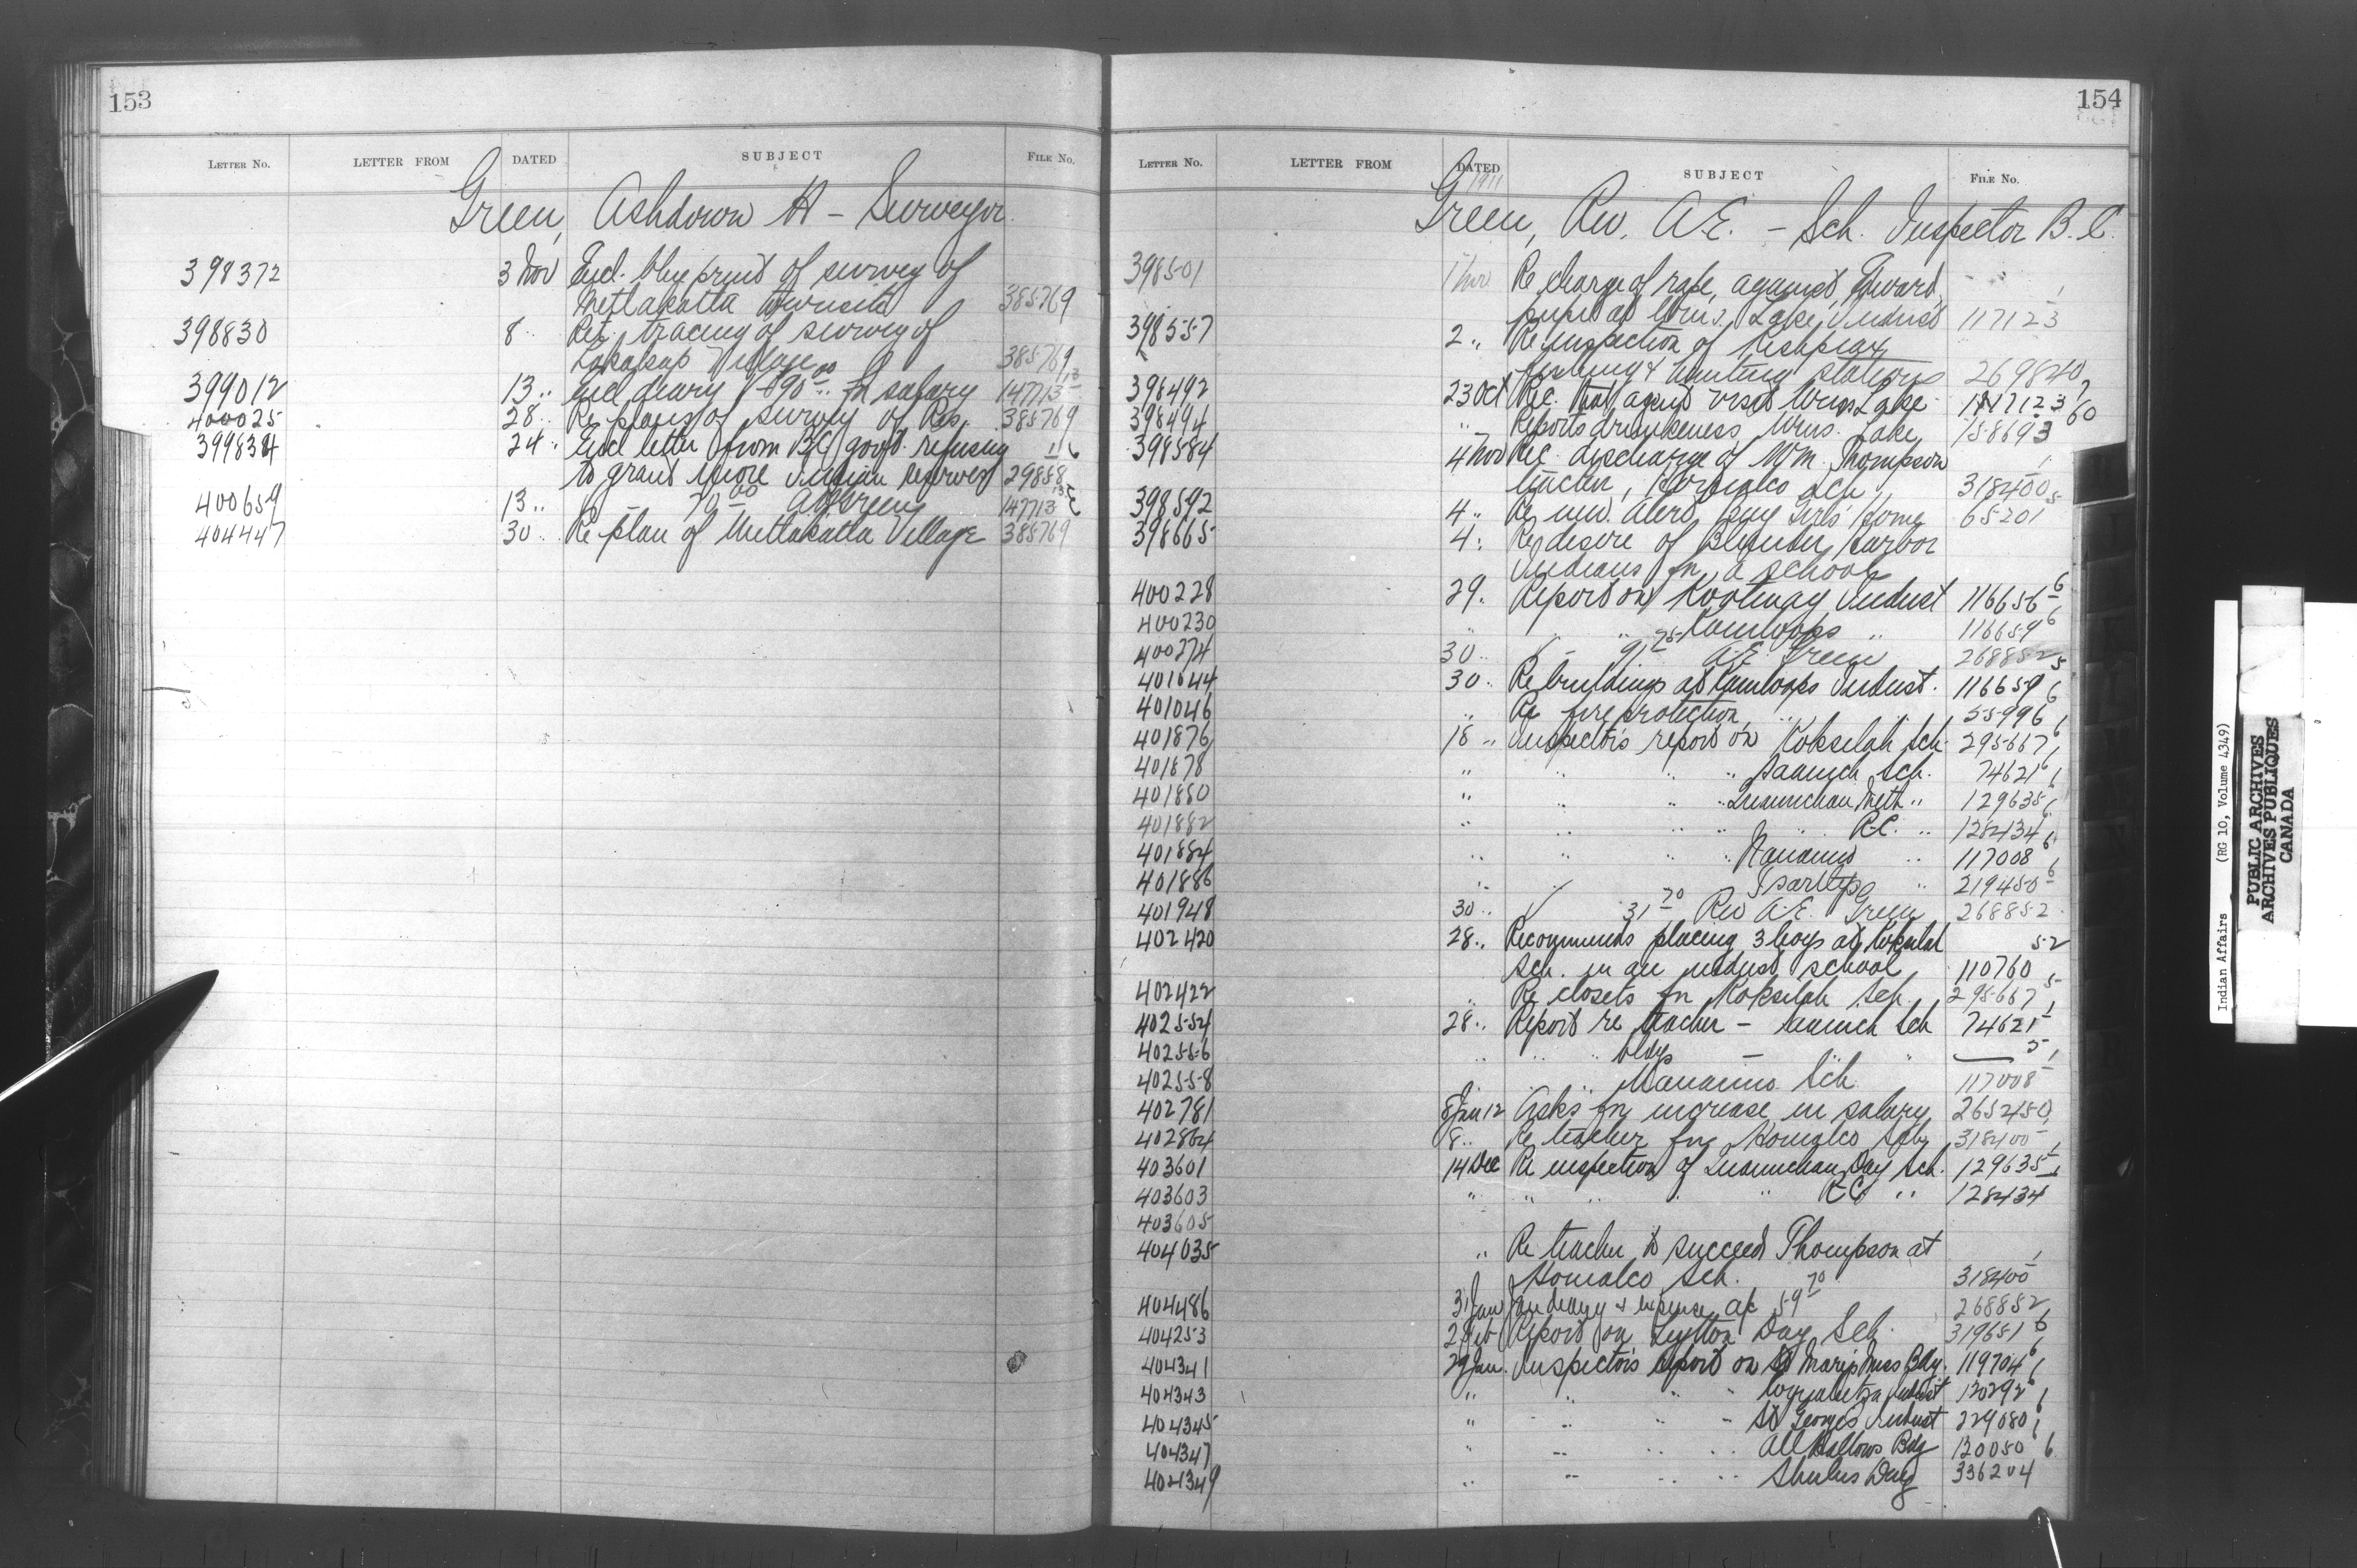 153
LETTER NO. LETTER FROM DATED SUBJECT FILE No.
Green, Ashdown H - Surveyor
398372 3 Nov Encl. blue print of survey of
Metlakatla Townsite 385769
398830 8 " Ret. tracing of survey of
Lakalsap Village 385769
399012 13 " Encl diary & 90.00 for salary 147713
400025 28 " Re plans of survey of Res. 385769
399834 24 " Encl letter from B.C. govt. refusing
to grant more Indian reserves 29858
400659 13 " 70.00 A H Green 147713
404447 30 " Re plan of Metlakatla Village 385769
154
LETTER NO. LETTER FROM DATED SUBJECT FILE No.
1911
Green, Rev. A.E. - Sch. Inspector B.C.
398501 1 Nov Re charge of rape, against Edward,
pupil at Wms. Lake Indust 117123
398557 2 " Re inspection of Kishpiax
fishing & hunting stations 269840
398492 23 Oct Rec. that agent visit Wms. Lake 117123
398494 " Reports drunkeness Wms. Lake 158693 60
398584 4 Nov Rec. discharge of Wm. Thompson
teacher, Homalco Sch. 318400
398592 4 " Re new Alert Bay Girls' Home 65201
398665 4 " Re desire of Blunden Harbor
Indians for a school
400228 29 " Report on Kootenay Indust 116656
400230 " " " Kamloops " 116659
400274 30 " 91.75 A.E. Green 268852
401044 30 " Re buildings at Kamloops Indust. 116659
401046 " Re fire protection " 55996
401876 18 " Inspector's report on Koksilah Sch. 295667
401878 " " " " Saanich Sch. 74621
401880 " " " " Quamichan Meth " 129635
401882 " " " " " R.C. " 128434
401884 " " " " Nanaimo " 117008
401886 " " Tsartlip " 219450
401948 30 " 31.70 Rev A.E. Green 268852
402420 28 " Recommends placing 3 boys at Koksilah 52
Sch. in an indust school 110760
402422 " Re closets for Koksilah Sch. 295667
402554 28 " Report re teacher - Saanich Sch 74621
402556 " " " bldgs - " "
402558 " " " Nanaimo Sch 117008
402781 8 Jan 12 Asks for increase in salary 265245
402864 8 " Re teacher for Homalco Sch 318400
403601 14 Dec Re inspection of Quamichan Day Sch. 129635
403603 " " " " " R C " 128434
403605
404035 " Re teacher to succeed Thompson at
Homalco Sch. 318400
404486 31 Jan Jan diary & expense a/c 59.70 268852
404253 2 Feb Report on Lytton Day Sch. 319651
404341 29 Jan. Inspector's report on St Mary's Miss Bdg. 119704
404343 " " " " Coqualeetza Indust 120292
404345 " " " " St George's Indust 229080
404347 " " " " All Hallows Bdg 120050
404349 " " " " Shulus Day 336204
Indian Affairs (RG 10, Volume 4349)
PUBLIC ARCHIVES
ARCHIVES PUBLIQUES
CANADA